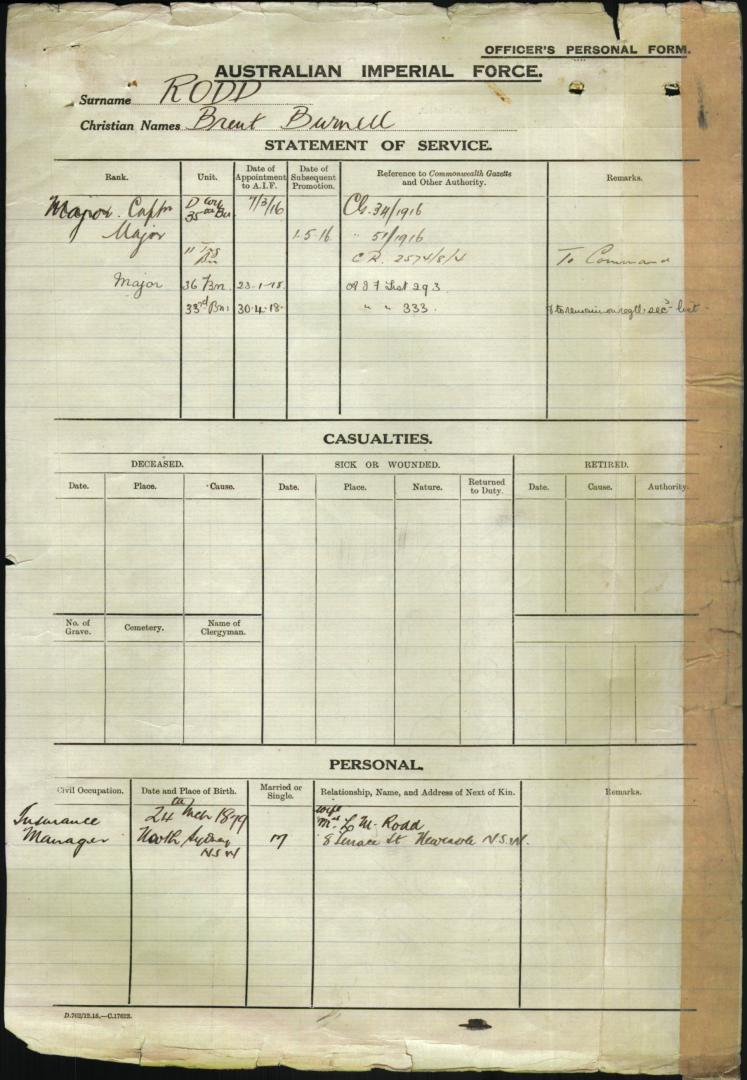 OFFICER'S PERSONAL FORM.
AUSTRALIAN IMPERIAL FORCE.
Surname RODD
Christian Names Brent Burnell
STATEMENT OF SERVICE.
Rank. Unit. Date of Appointment to A.I.F. Date of Subsequent Promotion. Reference to Commonwealth Gazette and Other Authority. Remarks.
Major. Captn D Coy 35th Bn 7/3/16 CG. 34/1916
Major 1.5.16 " 51/1916
11 Trg Bn C.R. 2574/8/4 To Command
Major 36 Bn. 23-1-18. A I F List 293.
33rd Bn: 30-4-18- " " 333. to remain on regtl. sec. list
CASUALTIES.
DECEASED. SICK OR WOUNDED. RETIRED.
Date. Place. Cause. Date. Place. Nature. Returned to Duty. Date. Cause. Authority.
No. of Grave. Cemetery. Name of Clergyman.
PERSONAL.
Civil Occupation. Date and Place of Birth. Married or Single. Relationship, Name, and Address of Next of Kin. Remarks.
Insurance 24th Mch 1879 wife Mrs L M. Rodd
Manager North Sydney N.S.W M St Newcastle N.S.W.
D.762/12.15.—C.17623.